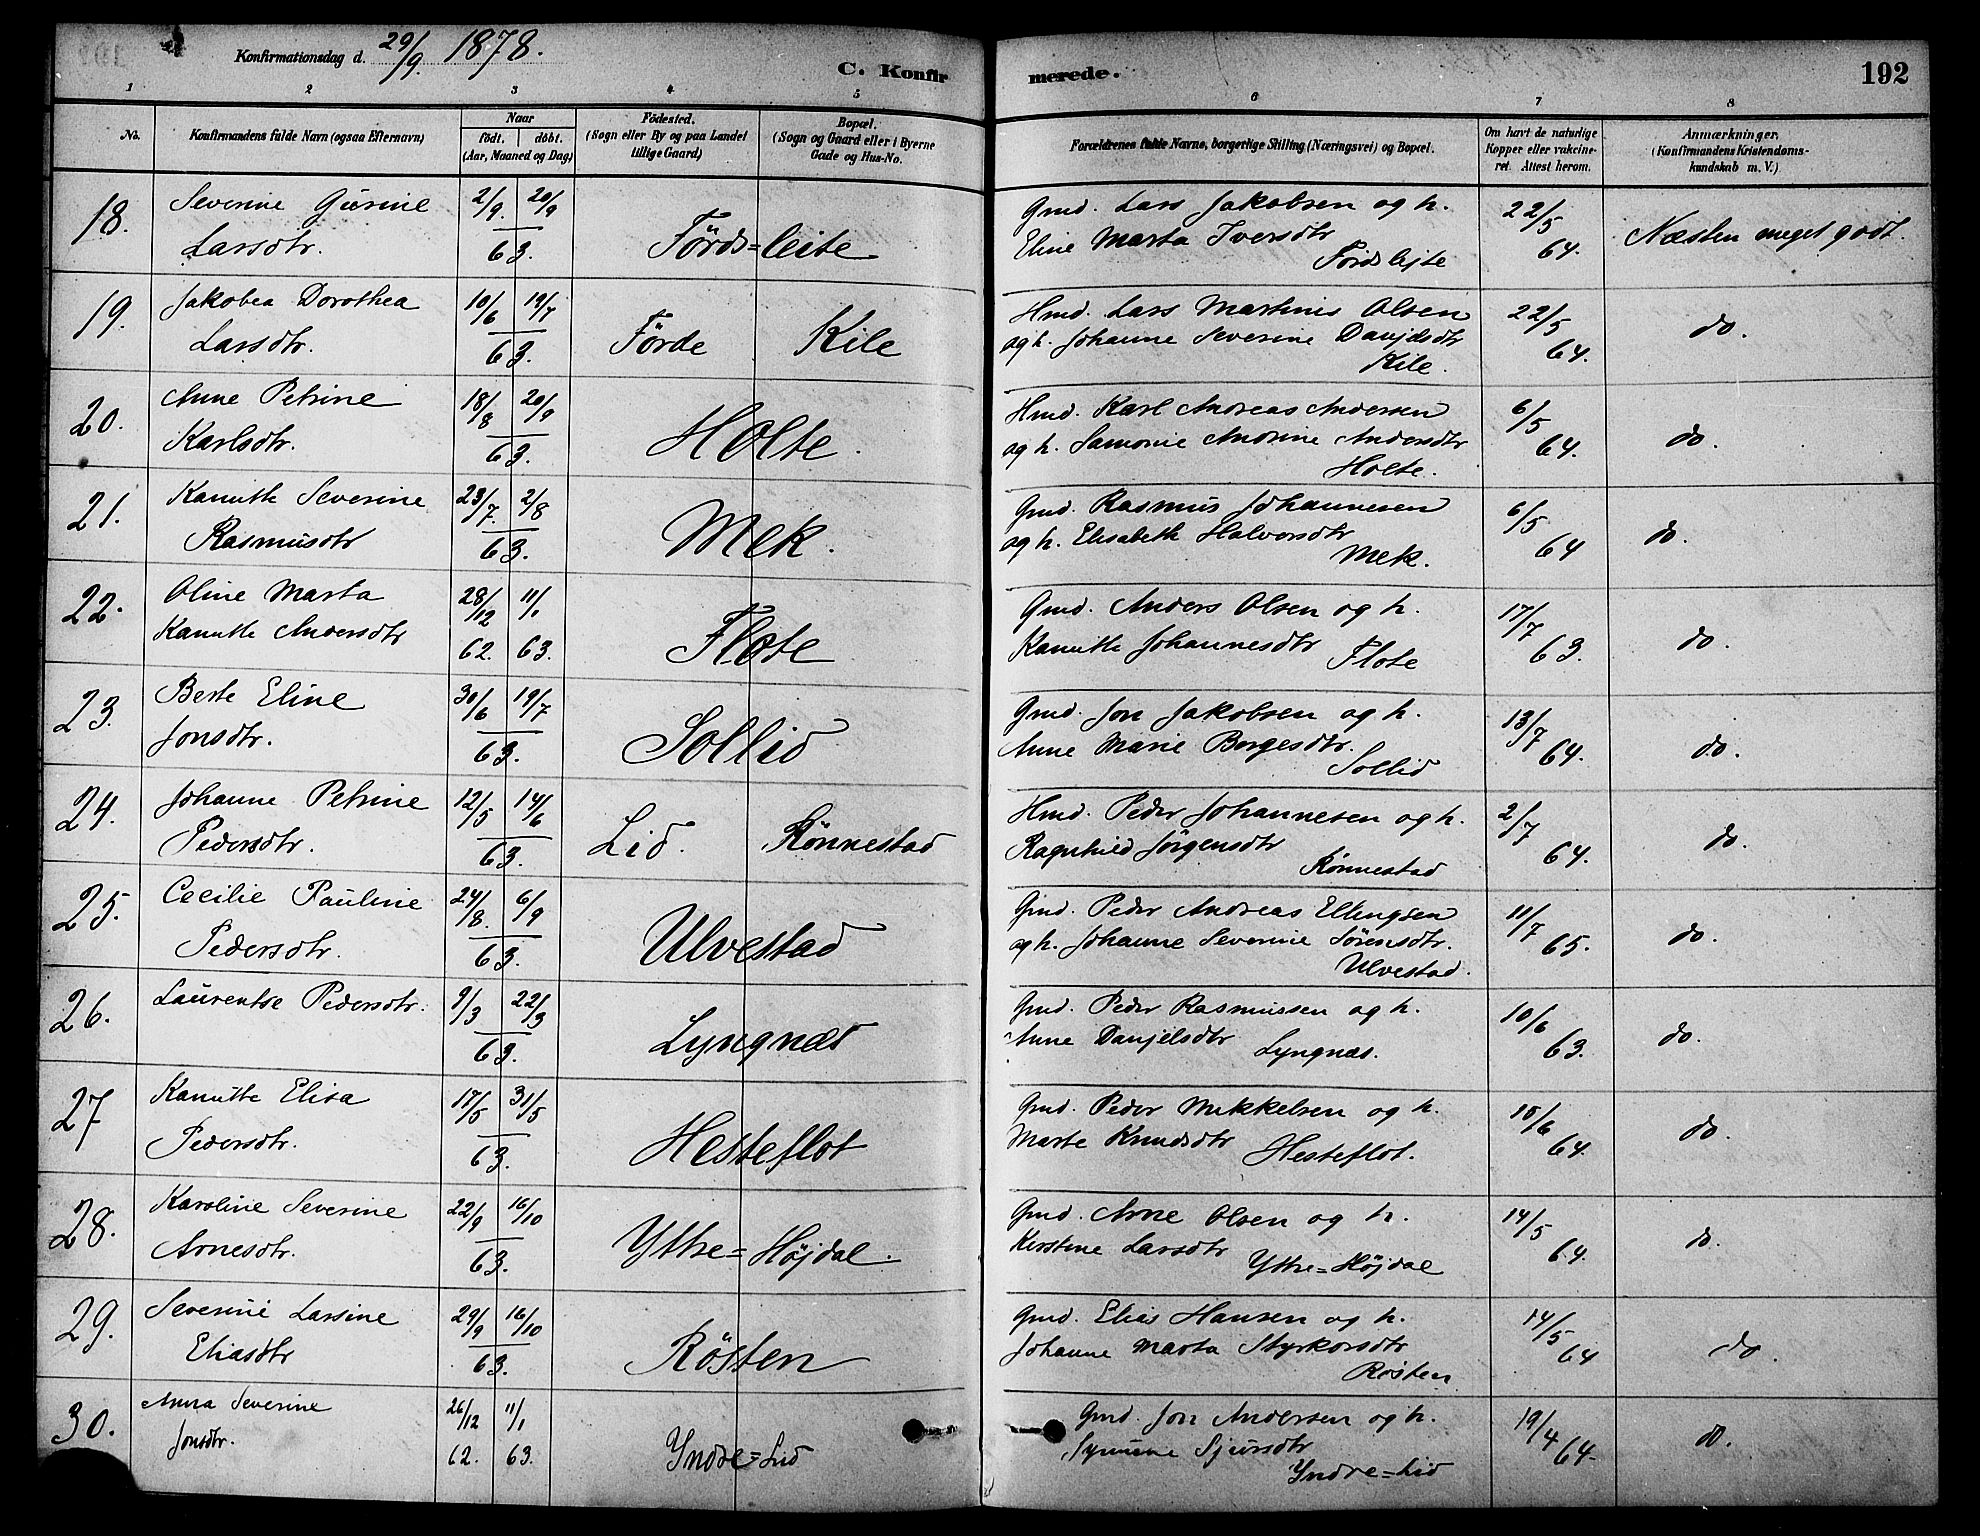 Konfirmationsdag d. 29/9. 1878.
C. Konfirmerede.
192
1 2 3 4 5 6 7 8
No. Konfirmandens fulde Navn (ogsaa Efternavn)
Naar født. døbt. (Aar, Maaned og Dag)
Fødested. (Sogn eller By og paa Landet tillige Gaard)
Bopæl. (Sogn og Gaard eller i Byerne Gade og Hus-No.
Forældrenes fulde Navne, borgerlige Stilling (Næringsvei) og Bopæl.
Om havt de naturlige Kopper eller vakcineret. Attest herom.
Anmærkninger. (Konfirmandens Kristendomskundskab m. V.)
18. Severine Gurine 2/9. 20/9 Gmd. Lars Jakobsen og h. 22/5
Larsdtr. 63. Förds=leite Eline Marta Iversdtr Fördslejte 64. Næsten meget godt.
19. Jakobea Dorothea 10/6 19/7 Hmd. Lars Martinus Olsen 22/5
Larsdtr. 63. Förde Kile og h. Johanne Severine Danjelsdtr Kile. 64. do.
20. Anne Petrine 18/8 20/9 Hmd. Karl Andreas Andersen 6/5
Karlsdtr. 63. Holte. og h. Samonie Andrine Andersdtr Holte. 64. do.
21. Kanutte Severine 23/7. 2/8 Gmd. Rasmus Johannesen 6/5
Rasmusdtr 63. Mek. og h. Elisabeth Halvorsdtr Mek. 64 do.
22. Oline Marta 28/12 11/1 Gmd. Anders Olsen og h. 17/7
Kanutte Andersdtr 62. 63. Flote Kanutte Johannesdtr Flote 63. do.
23. Berte Eline 30/6 19/7 Gmd. Jon Jakobsen og h. 13/7
Jonsdtr. 63. Sollid Anne Marie Borgesdtr. Sollid 64. do.
24. Johanne Petrine 12/5 14/6 Hmd. Peder Johannesen og h. 2/7
Pedersdtr. 63. Lid. Rönnestad Ragnhild Jörgensdtr Rönnestad 64. do.
25. Cecilie Pauline 24/8. 6/9 Gmd. Peder Andreas Ellingsen 11/7
Pedersdtr. 63. Ulvestad og h. Johanne Severine Sörensdtr. Ulvestad. 65. do.
26. Laurentse Pedersdtr. 9/3 22/3 Gmd. Peder Rasmussen og h. 10/6
63. Lyngnæs Anne Danjelsdtr Lyngnæs. 63. do.
27 Kanutte Elisa 17/5 31/5 Gmd. Peder Mikkelsen og h. 15/6
Pedersdtr. 63. Hesteflot Marte Knudsdtr Hesteflot. 64. do.
28. Karoline Severine 22/9 16/10 Gmd. Arne Olsen og h. 14/5
Arnesdtr. 63. Yttre=Höjdal. Kerstine Larsdtr Yttre=Höjdal 64. do.
29. Severine Larsine 29/9 16/10 Gmd. Elias Hansen og h. 14/5
Eliasdtr 63. Rösten Johanne Marta Styrkorsdtr Rösten 64 do.
30. Anna Severine 26/12 11/1 Gmd. Jon Andersen og h. 19/4
Jonsdtr. 62. 63. Yndre=Lid Synneve Sjursdtr Yndre=Lid 64. do.